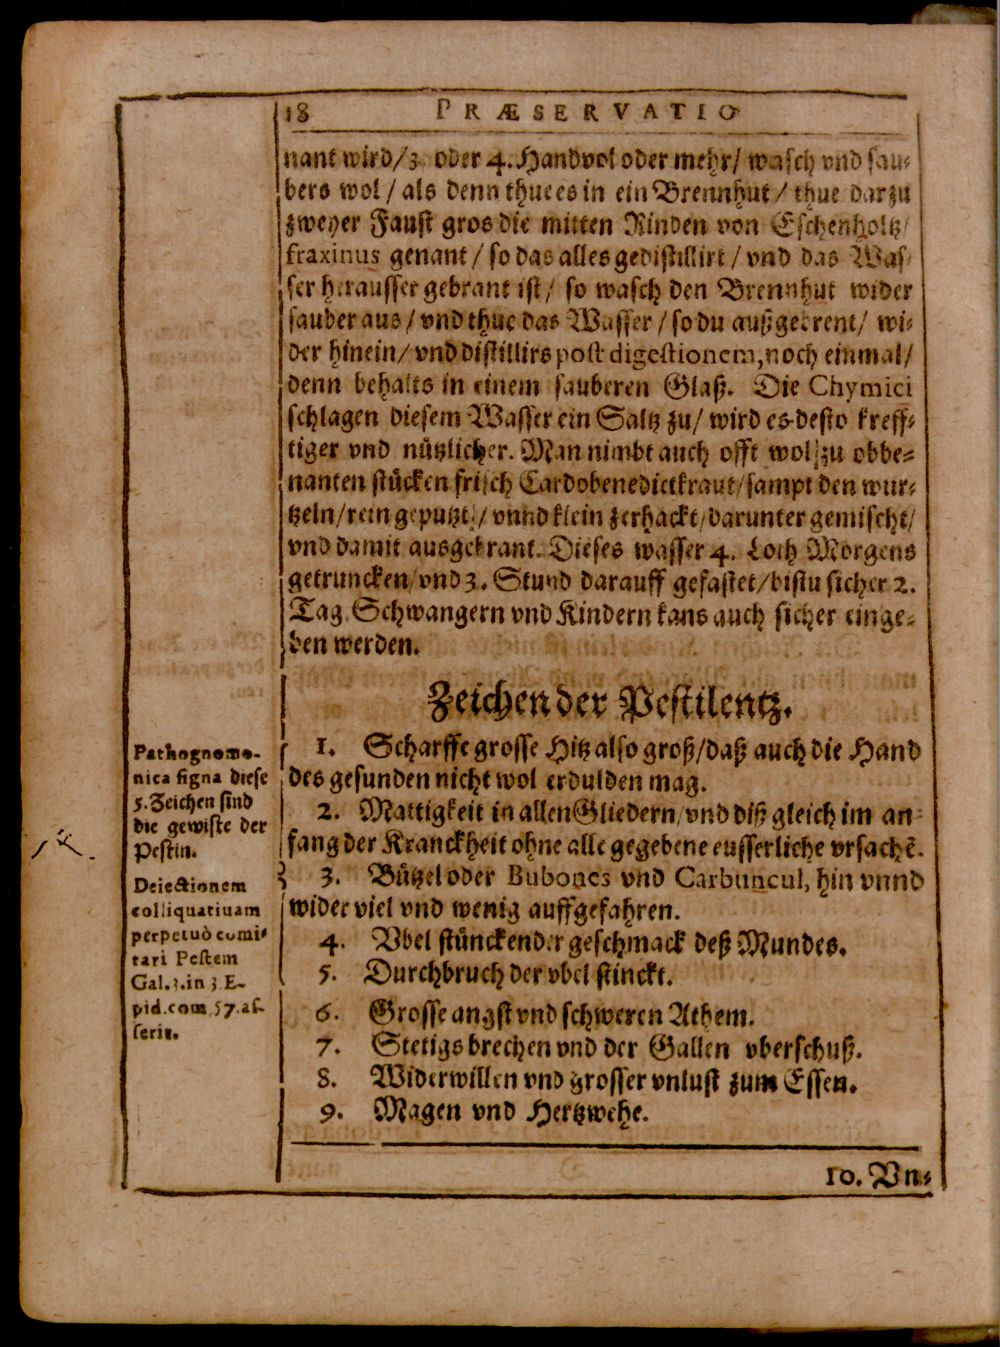 18 PRÆSERVATIO
nant wird/3. oder 4. Handvol oder mehr/ wasch vnd sau-
bers wol/ als denn thue es in ein Brennhut/ thue darzu
zweyer Faust gros die mitten Rinden von Eschenholtz/
fraxinus genant/ so das alles gedistillirt/ vnd das Was-
ser herausser gebrant ist/ so wasch den Brennhut wider
sauber aus/ vnd thue das Wasser/ so du außgebrent/ wi-
der hinein/ vnd distillirs post digestionem, noch einmal/
denn behalts in einem sauberen Glaß. Die Chymici
schlagen diesem Wasser ein Saltz zu/ wird es desto kreff-
tiger vnd nützlicher. Man nimbt auch offt wol zu obbe-
nanten stücken frisch Cardobenedictkraut/ sampt den wur-
tzeln/ rein geputzt/ vnnd klein zerhackt/ darunter gemischt/
vnd damit ausgebrant. Dieses wasser 4. Loth Morgens
getruncken/ vnd 3. Stund darauff gefastet/ bistu sicher 2.
Tag. Schwangern vnd Kindern kans auch sicher einge-
ben werden.
Zeichen der Pestilentz.
1. Scharffe grosse Hitz also groß/ daß auch die Hand
des gesunden nicht wol erdulden mag.
2. Mattigkeit in allen Gliedern/ vnd diß gleich im an-
fang der Kranckheit ohne alle gegebene eusserliche vrsachẽ.
3. Bützel oder Bubones vnd Carbuncul, hin vnnd
wider viel vnd wenig auffgefahren.
4. Vbel stünckender geschmack deß Mundes.
5. Durchbruch der vbel stinckt.
6. Grosse angst vnd schweren Athem.
7. Stetigs brechen vnd der Gallen vberschuß.
8. Widerwillen vnd grosser vnlust zum Essen.
9. Magen vnd Hertzwehe.
10. Vn-
Pathognomo-
nica signa diese
5. Zeichen sind
die gewiste der
Pestin.
Deiectionem
colliquatiuam
perpetuò comi-
tari Pestem
Gal. 3. in 3 E-
pid. com 57. as-
serit.